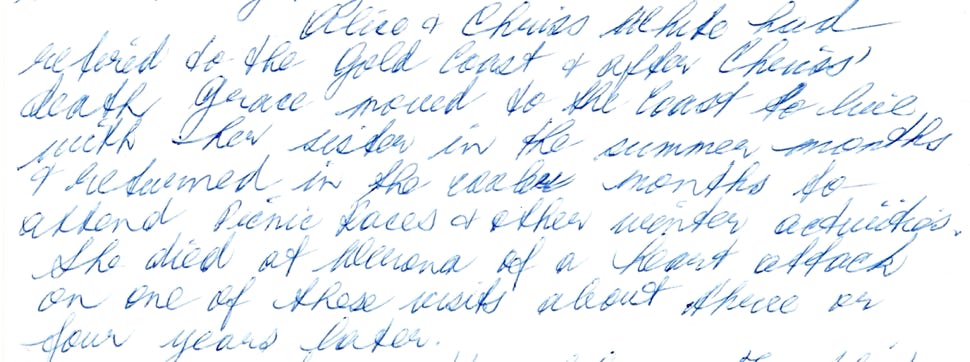 Alice & Chriss White had
retired to the Gold Coast & after Chriss'
death Grace moved to the Coast to live
with her sister in the summer months
& returned in the cooler months to
attend Picnic Races & other winter activities.
She died at Merona of a heart attack
on one of these visits about three or
four years later.